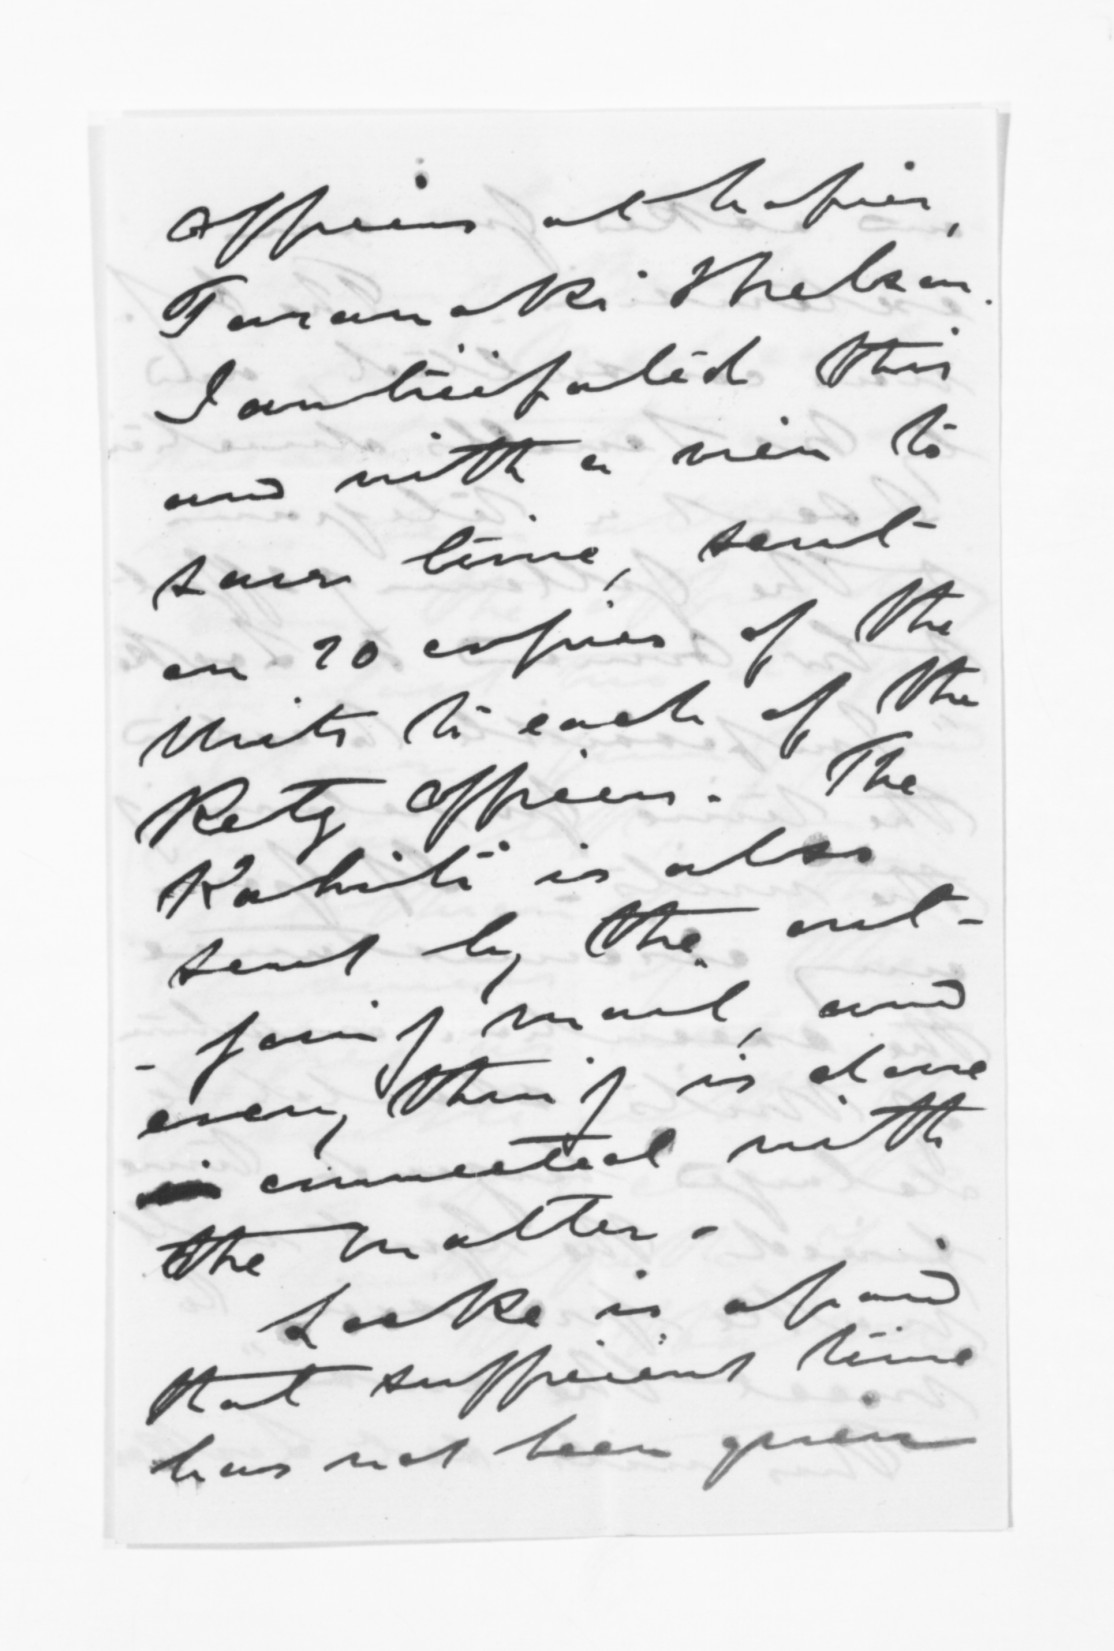 officers at Napier,
Taranaki & Nelson.
I anticipated this
and with a view to
save time, sent
on 20 copies of the
Writs to each of the
Retg Officers. The
Kahiti is also
sent by the out-
-going mail, and
every thing is done
connected with
the matter.
Locke is afraid
that sufficient time
has not been given